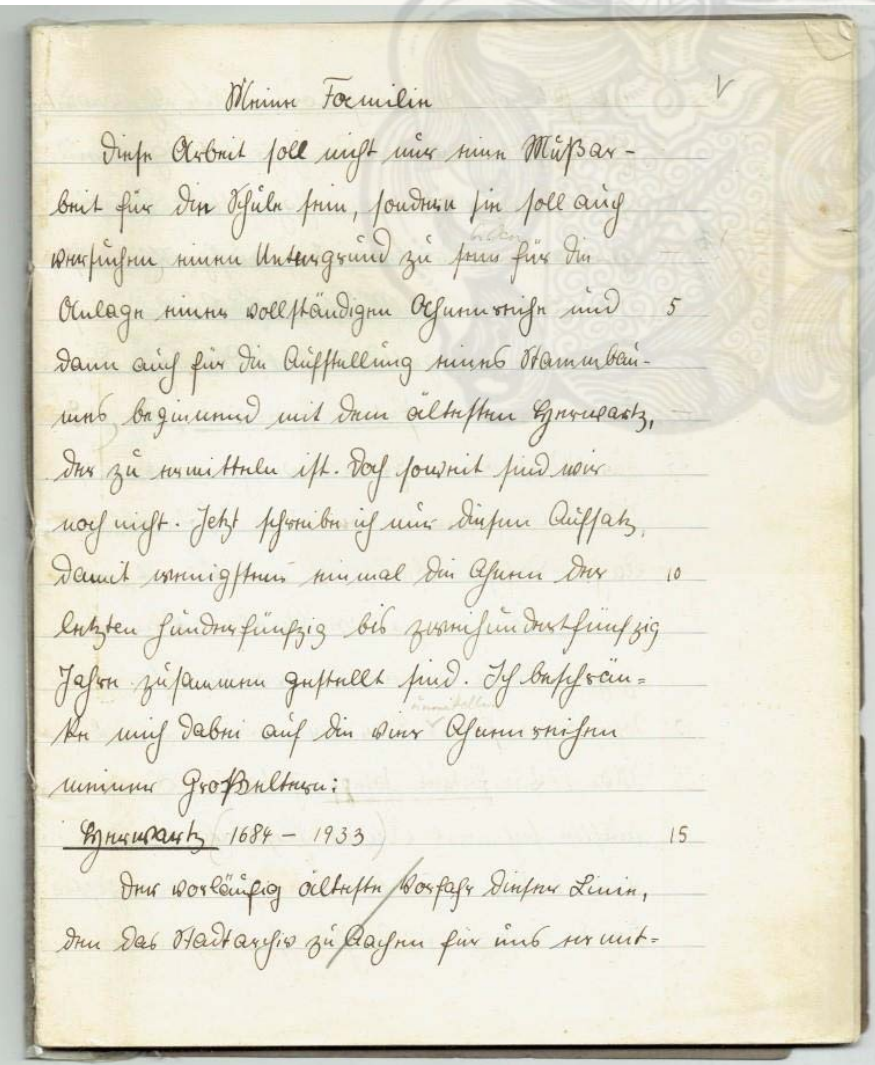 Meine Familie
Diese Arbeit soll nicht nur eine Mußar-
beit für die Schule sein, sondern sie soll auch
versuchen einen Untergrund zu sein für die
Anlage einer vollständigen Ahnenreihe und 5
dann auch für die Aufstellung eines Stammbau-
mes beginnend mit dem ältesten Herwartz,
der zu ermitteln ist. Doch soweit sind wir
noch nicht. Jetzt schreibe ich nur diesen Aufsatz,
damit wenigstens einmal die Ahnen der 10
letzten hundertfünfzig bis zweihundertfünfzig
Jahre zusammen gestellt sind. Ich beschrän=
ke mich dabei auf die vier Ahnenreihen
meiner Großeltern:
Herwartz 1684 – 1933 15
Der vorläufig älteste Vorfahr dieser Linie,
den das Stadtarchiv zu Aachen für uns ermit=